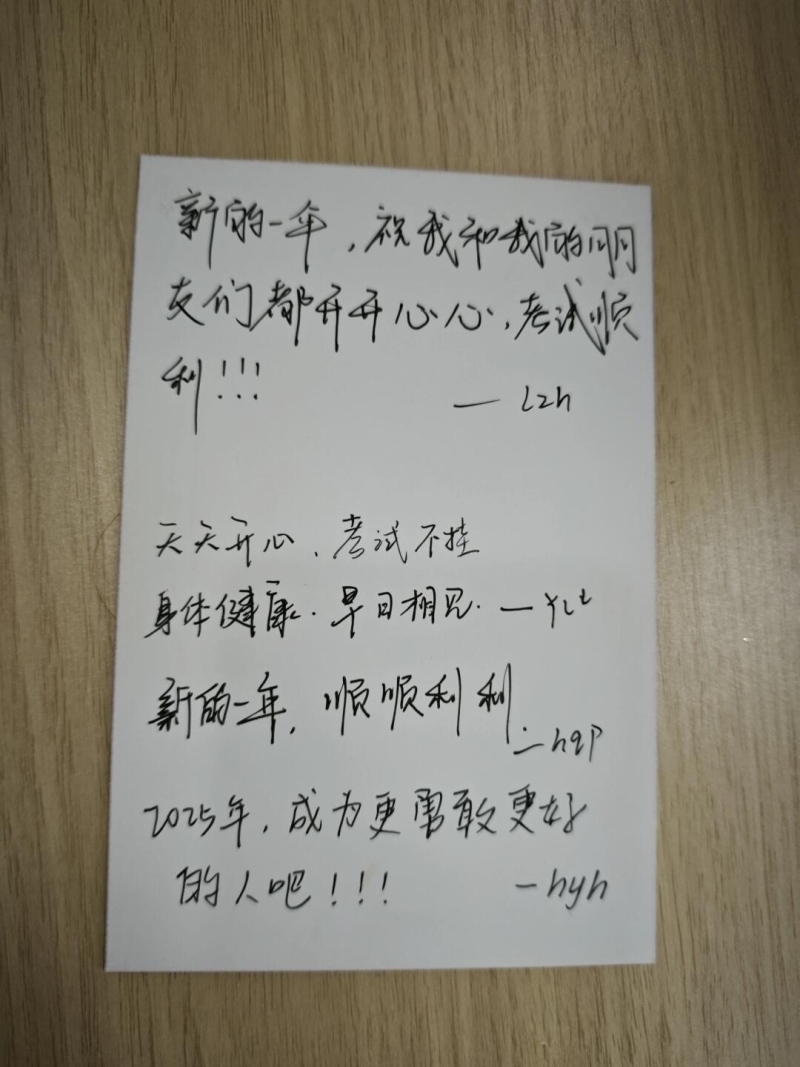 新的一年，祝我和我的朋
友们都开开心心，考试顺
利!!!
— lzh
天天开心、考试不挂
身体健康．早日相见．— ylt
新的一年，顺顺利利．
— hqp
2025年，成为更勇敢更好
的人吧!!! — hyh